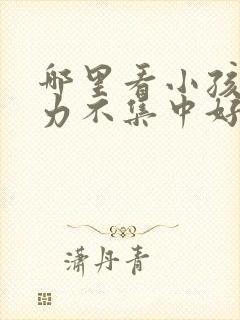 哪里看小孩
力不集中好
潇丹青